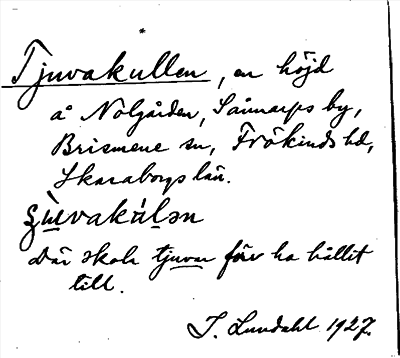 Tjuvakullen, en höjd
å Nolgården, Sånnarps by,
Brismene sn, Frökinds hd,
Skaraborgs län.
ʂu̲vakǻlən
Där skola tjuvar förr ha hållit
till.
J. Lundahl 1927.